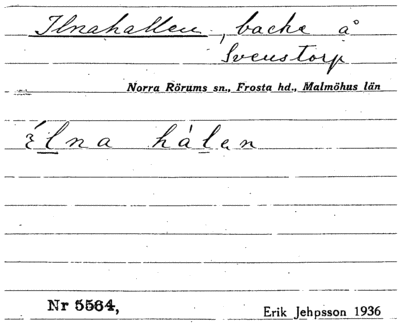 Ilnahallen, backe å
Svenstorp
Norra Rörums sn., Frosta hd., Malmöhus län
hálen
Nr 5564,
Erik Jehpsson 1936